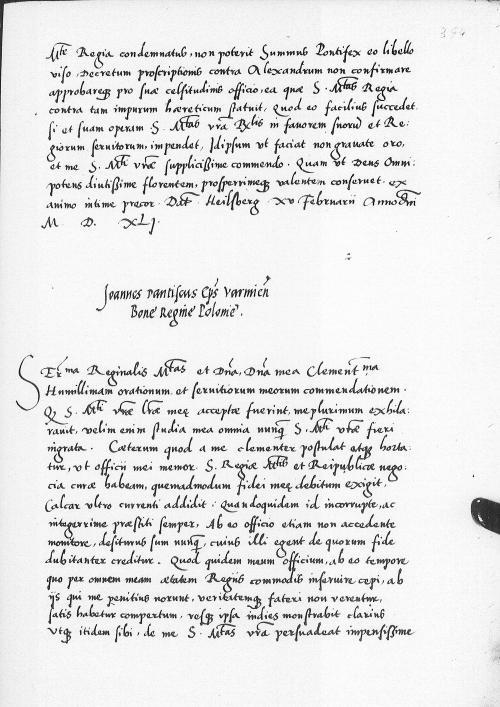 394
Mte Regia condemnatus, non poterit Summus Pontifex eo libello
viso, Decretum proscriptionis contra Alexandrum non confirmare
approbareq3 pro suæ celsitudinis officio, ea quæ S. Mtas Regia
contra tam impurum hæreticum statuit, Quod eo facilius succedet
si et suam operam S. Mtas vra Rlis in favorem suorũ et Re-
giorum servitorum, impendet, Idipsum vt faciat non gravate oro,
et me S. Mti vræ supplicissime commendo. Quam vt Deus Omni-
potens diutissime florentem, prosperrimeq3 valentem conservet ex
animo intime precor. Dat Heilsberg xv Februarii Anno Dñi
M D. XLI
Joannes Dantiscus Eps Varmieñ
Bone Regine Polonie.
Serma Reginalis Mtas et Dña, Dña mea Clementma
Humillimam orationum et servitiorum meorum commendationem.
Q S. Mti vræ lræ meę acceptæ fuerint, me plurimum exhila-
ravit, velim enim studia mea omnia nunq S. Mti vræ fieri
ingrata. Cæterum quod a me clementer postulat atq3 horta-
tur, vt officii mei memor S. Regiæ Mtis et Reipublicæ nego-
cia curæ habeam, quemadmodum fidei meę debitum exigit,
Calcar vltro currenti addidit: Quandoquidem id incorrupte, ac
integerrime præstiti semper, Ab eo officio etiam non accedente
monitore, desiturus sum nunq, cuius illi egent de quorum fide
dubitanter creditur. Quod quidem meum officium, ab eo tempore
quo per omnem meam ætatem Regiis commodis inservire cepi, ab
iis qui me penitius norunt, veritatemq3 fateri non verentur,
satis habetur compertum, resq3 ipsa indies monstrabit clarius
Vtq3 itidem sibi, de me S. Mtas vra persuadeat impensissime